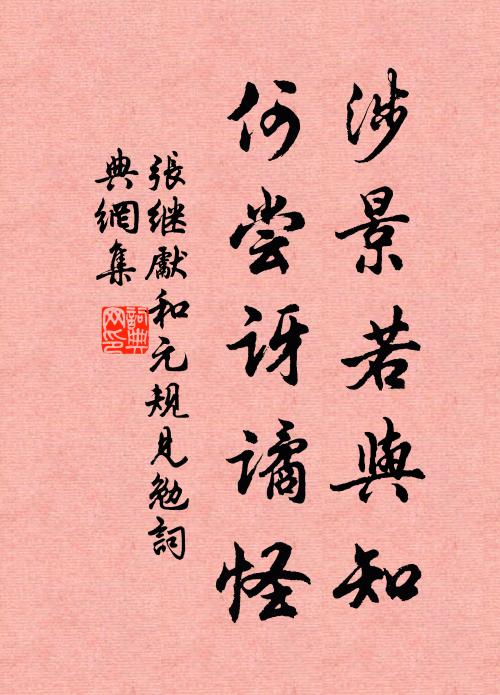 涉景若與知
何尝訝譎怪
張继獻和元規見勉詞
典網集
詞典網印